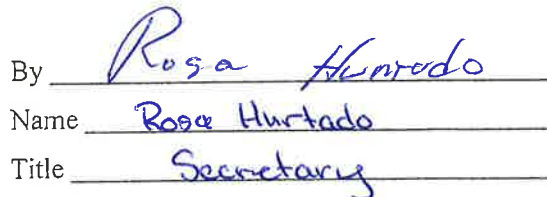 By Rosa Hunrodo
Name Rosa Hurtado
Title Secretary